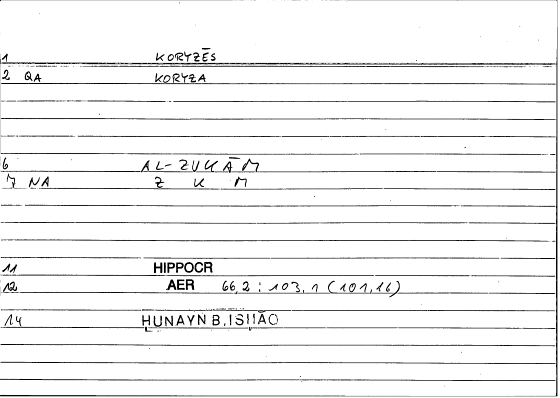 1 KORYZĒS
2 QA KORYZA
6 AL-ZUKĀM
7 NA Z K M
11 HIPPOCR
12 AER 66,2 : 103,1 (101,16)
14 ḤUNAYN B. ISḤĀQ